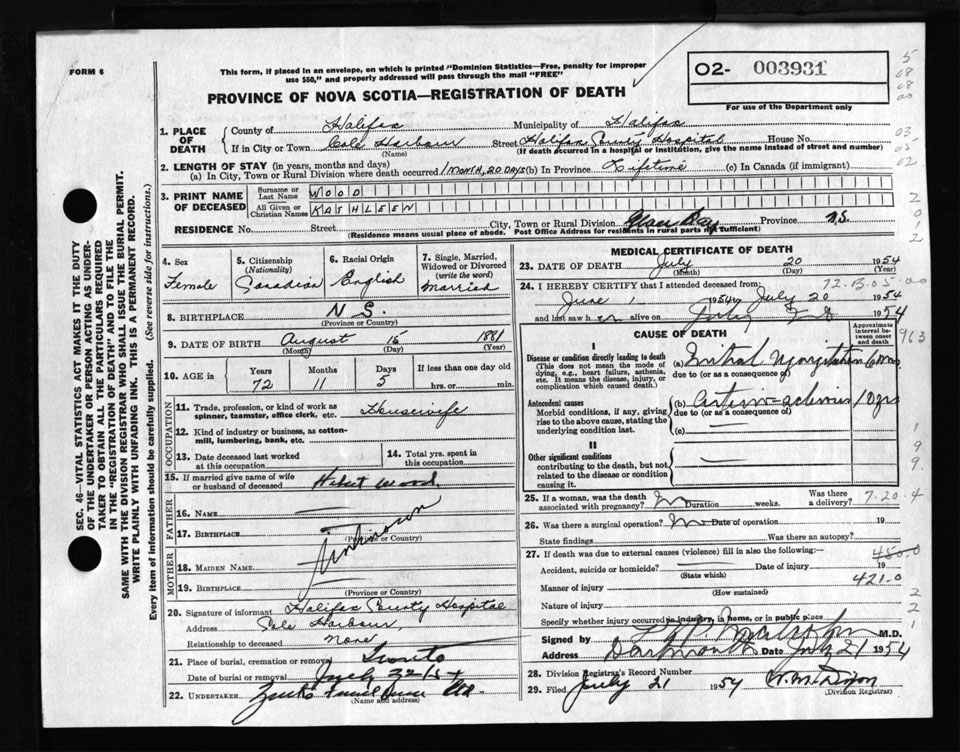 FORM 6
This form, if placed in an envelope, on which is printed "Dominion Statistics—Free, penalty for improper
use $50," and properly addressed will pass through the mail "FREE"
PROVINCE OF NOVA SCOTIA—REGISTRATION OF DEATH
O2- 003931
For use of the Department only
1. PLACE OF DEATH
County of Halifax Municipality of Halifax
If in City or Town Cole Harbour Street Halifax County Hospital House No.
(Name) (If death occurred in a hospital or institution, give the name instead of street and number)
2. LENGTH OF STAY (in years, months and days)
(a) In City, Town or Rural Division where death occurred 1 month, 20 days (b) In Province Lifetime (c) In Canada (if immigrant)
3. PRINT NAME OF DECEASED
Surname or Last Name WOOD
All Given or Christian Names KATHLEEN
RESIDENCE No. Street City, Town or Rural Division Glace Bay Province N.S.
(Residence means usual place of abode. Post Office Address for residents in rural parts not sufficient)
4. Sex Female
5. Citizenship (Nationality) Canadian
6. Racial Origin English
7. Single, Married, Widowed or Divorced (write the word) Married
8. BIRTHPLACE N S.
(Province or Country)
9. DATE OF BIRTH August 15 1881
(Month) (Day) (Year)
10. AGE in Years 72 Months 11 Days 5 If less than one day old hrs. or min.
OCCUPATION
11. Trade, profession, or kind of work as spinner, teamster, office clerk, etc. Housewife
12. Kind of industry or business, as cotton-mill, lumbering, bank, etc.
13. Date deceased last worked at this occupation
14. Total yrs. spent in this occupation
15. If married give name of wife or husband of deceased Wood
FATHER
16. Name
17. Birthplace
(Province or Country)
unknown
MOTHER
18. Maiden Name
19. Birthplace
(Province or Country)
20. Signature of informant Halifax County Hospital
Address Cole Harbour,
Relationship to deceased None
21. Place of burial, cremation or removal
Date of burial or removal July 22/54
22. Undertaker
(Name and address)
MEDICAL CERTIFICATE OF DEATH
23. DATE OF DEATH July 20 1954
(Month) (Day) (Year)
24. I HEREBY CERTIFY that I attended deceased from:
72.B.05.00
June 1 1954 July 20 1954
and last saw h er alive on 1954
CAUSE OF DEATH
Approximate interval between onset and death
963
I
Disease or condition directly leading to death
(This does not mean the mode of dying, e.g., heart failure, asthenia, etc. It means the disease, injury, or complication which caused death.)
(a) Mitral
due to (or as a consequence of)
Antecedent causes
Morbid conditions, if any, giving rise to the above cause, stating the underlying condition last.
(b)
due to (or as a consequence of)
(c)
II
Other significant conditions
contributing to the death, but not related to the disease or condition causing it.
25. If a woman, was the death associated with pregnancy? No Duration weeks. Was there a delivery?
7-20-4
26. Was there a surgical operation? No Date of operation 19
State findings Was there an autopsy?
27. If death was due to external causes (violence) fill in also the following:
450.0
Accident, suicide or homicide? Date of injury 19
(State which)
421.0
Manner of injury
(How sustained)
Nature of injury
Specify whether injury occurred in industry, in home, or in public place
Signed by M.D.
Address Dartmouth Date July 21 1954
28. Division Registrar's Record Number
29. Filed July 21 1954
(Division Registrar)
SEC. 46—VITAL STATISTICS ACT MAKES IT THE DUTY
OF THE UNDERTAKER OR PERSON ACTING AS UNDER-
TAKER TO OBTAIN ALL THE PARTICULARS REQUIRED
IN THE "REGISTRATION OF DEATH" AND TO FILE THE
SAME WITH THE DIVISION REGISTRAR WHO SHALL ISSUE THE BURIAL PERMIT.
WRITE PLAINLY WITH UNFADING INK. THIS IS A PERMANENT RECORD.
Every item of information should be carefully supplied. (See reverse side for instructions.)